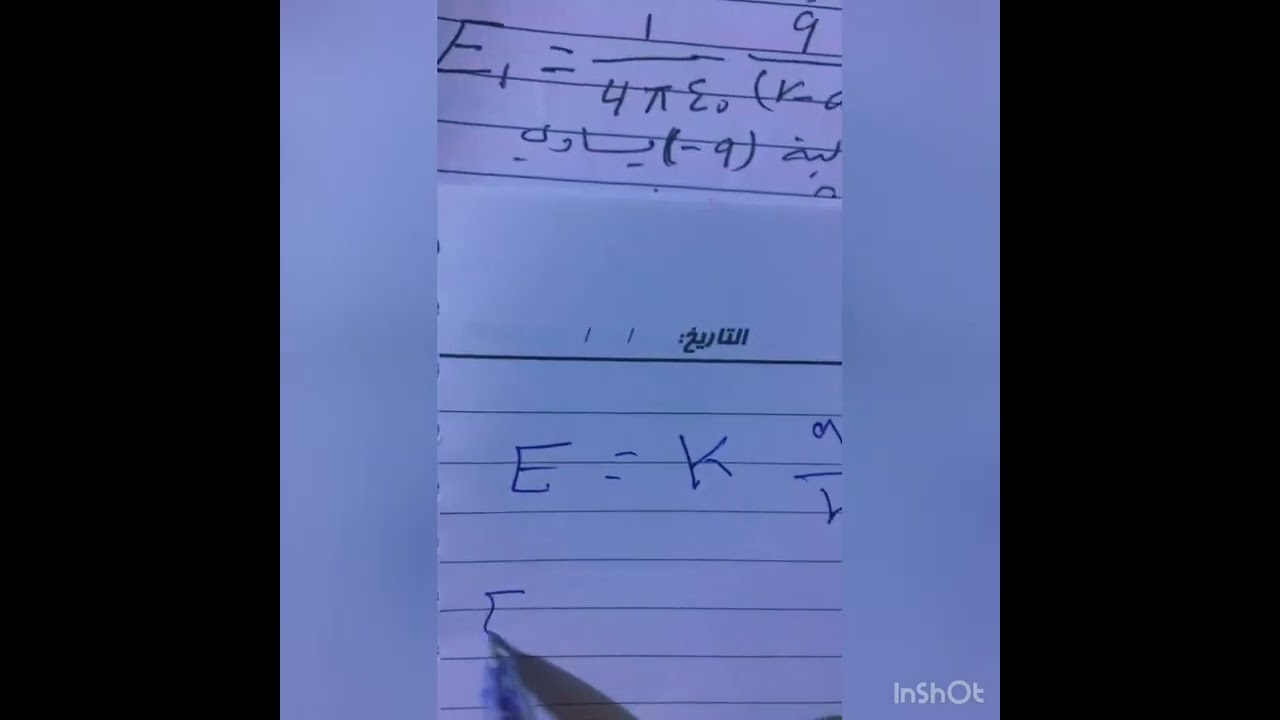 E₁ = 1/4πε₀ q/(r-
(-q) يساوي
التاريخ: / /
E = K q/r
E
InShOt